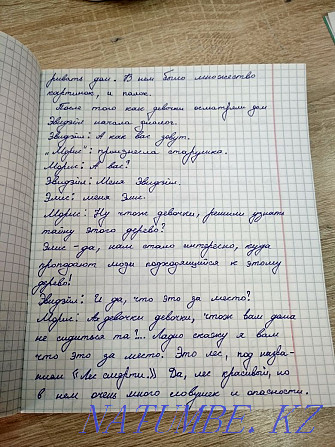 ривать дом. В нем было множество
картинок, и полок.
После того как девочки осмотрели дом
Эвидэйл начала диалог.
Эвидэйл: А как вас зовут.
„Морис": произнесла старушка.
Морис: А вас?
Эвидэйл: Меня Эвидэйл.
Элис: меня Элис.
Морис: Ну чтож девочки, решили узнать
тайну этого дерева?
Элис - да, нам стало интересно, куда
пропадают люди подходящийся к этому
дереву.
Эвидэйл: И да, что это за место?
Морис: Ах девочки девочки, чтож вам дома
не сидиться та?... Ладно скажу я вам
что это за место. Это лес, под назва-
нием «Лес смерти.» Да, лес красивый, но
в нем очень много ловушек и опасности.
NATUMBE.KZ